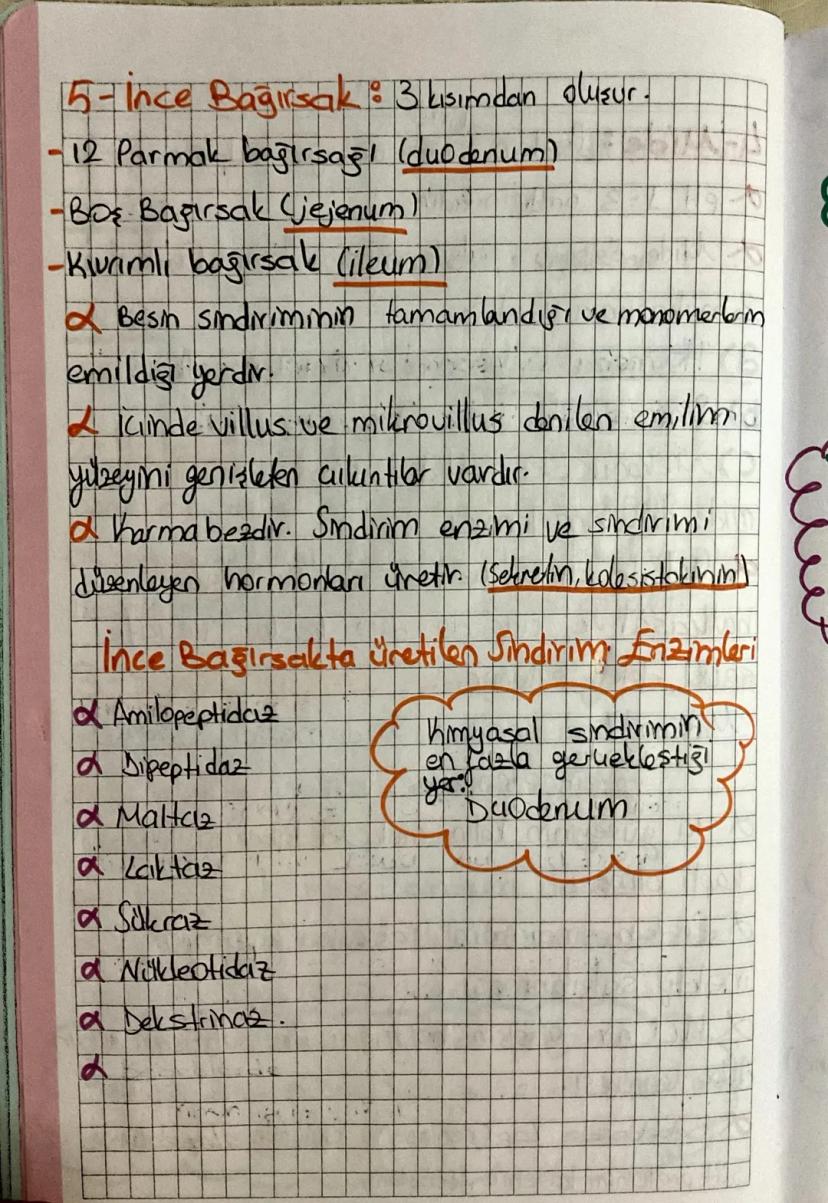 5-İnce Bağırsak: 3 kısımdan oluşur.
-12 Parmak bağırsağı (duodenum)
-Boş Bağırsak (jejenum)
-Kıvrımlı bağırsak (ileum)
α Besin sindiriminin tamamlandığı ve monomerlerin
emildiği yerdir.
α İçinde villus ve mikrovillus denilen emilim
yüzeyini genişleten çıkıntılar vardır.
α Karma bezdir. Sindirim enzimi ve sindirimi
düzenleyen hormonları üretir. (Sekretin, kolesistokinin)
İnce Bağırsakta üretilen Sindirim Enzimleri
α Amilopeptidaz
α Dipeptidaz
α Maltaz
α Laktaz
α Sükraz
α Nükleotidaz
α Dekstrinaz.
α
Kimyasal sindirimin
en fazla gerçekleştiği
yer:
Duodenum